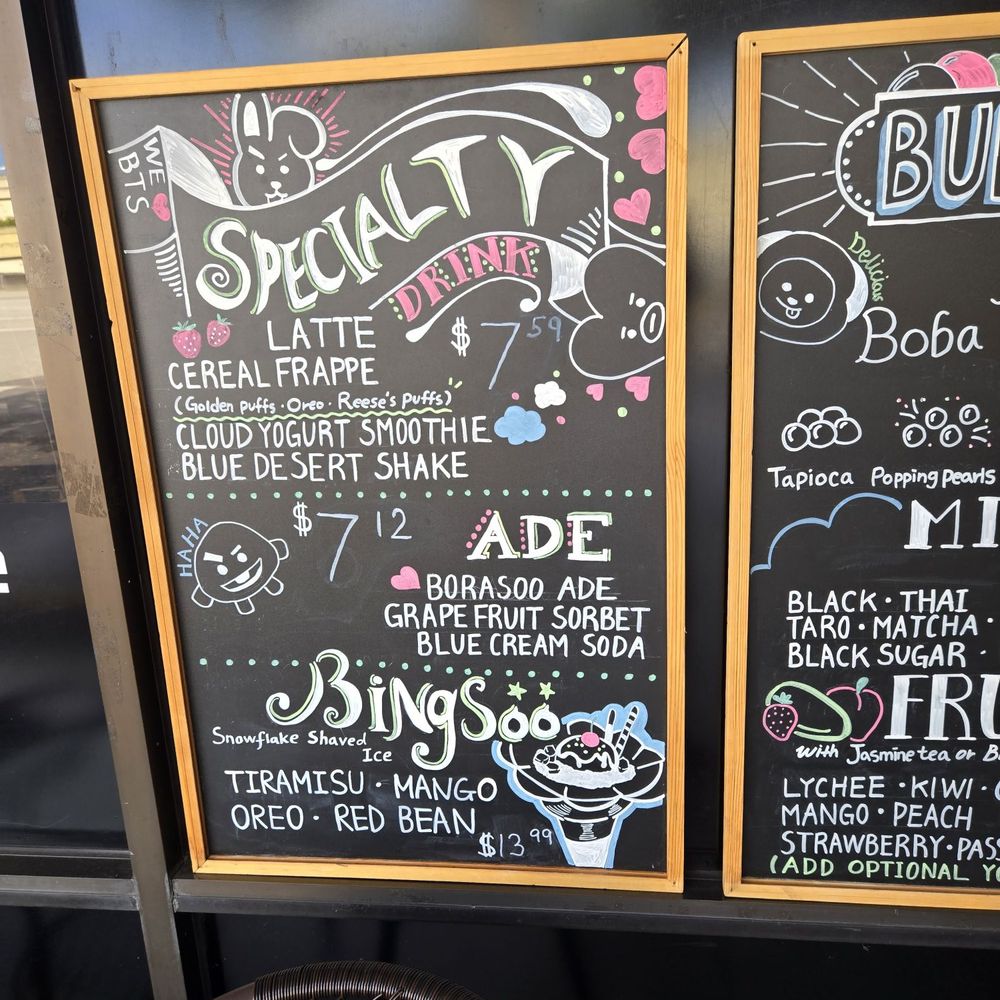 WE
BTS
SPECIALTY
DRINK
LATTE
$7 59
CEREAL FRAPPE
(Golden puffs · Oreo · Reese's Puffs)
CLOUD YOGURT SMOOTHIE
BLUE DESERT SHAKE
HAHA
$7 12
ADE
BORASOO ADE
GRAPEFRUIT SORBET
BLUE CREAM SODA
BINgSOO
Snowflake Shaved
Ice
TIRAMISU · MANGO
OREO · RED BEAN
$13 99
Delicious
Boba
Tapioca Popping pearls
BLACK · THAI
TARO · MATCHA ·
BLACK SUGAR ·
with Jasmine tea or
LYCHEE · KIWI ·
MANGO · PEACH
STRAWBERRY ·
(ADD OPTIONAL